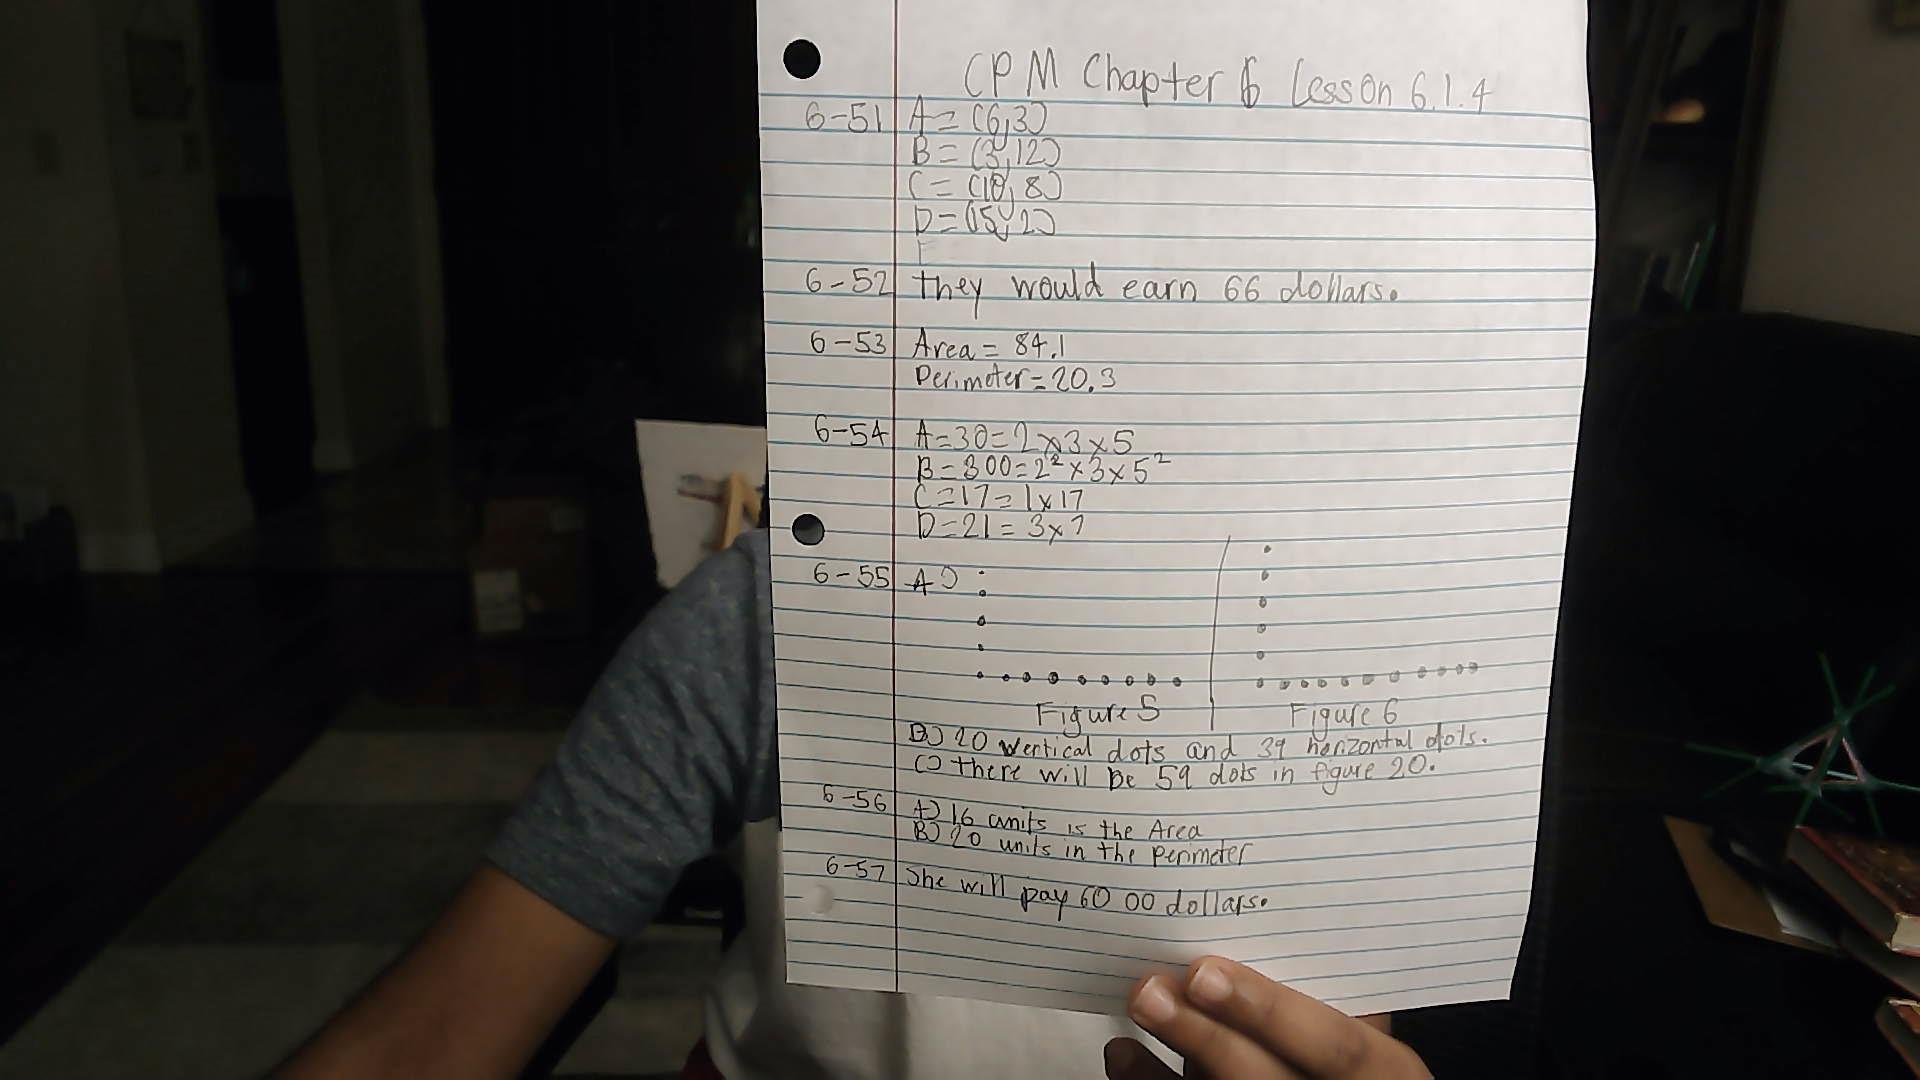 CPM Chapter 6 Lesson 6.1.4
6-51 A = (6,3)
B = (3,12)
C = (10,8)
D = (5,2)
6-52 they would earn 66 dollars.
6-53 Area = 84.1
Perimeter = 20.3
6-54 A=30=2x3x5
B=300=2²x3x5²
C=17=1x17
D=21=3x7
6-55 A)
Figure 5 Figure 6
B) 20 vertical dots and 39 horizontal dots.
C) there will be 59 dots in figure 20.
6-56 A) 16 units is the Area
B) 20 units in the perimeter
6-57 She will pay 60 00 dollars.